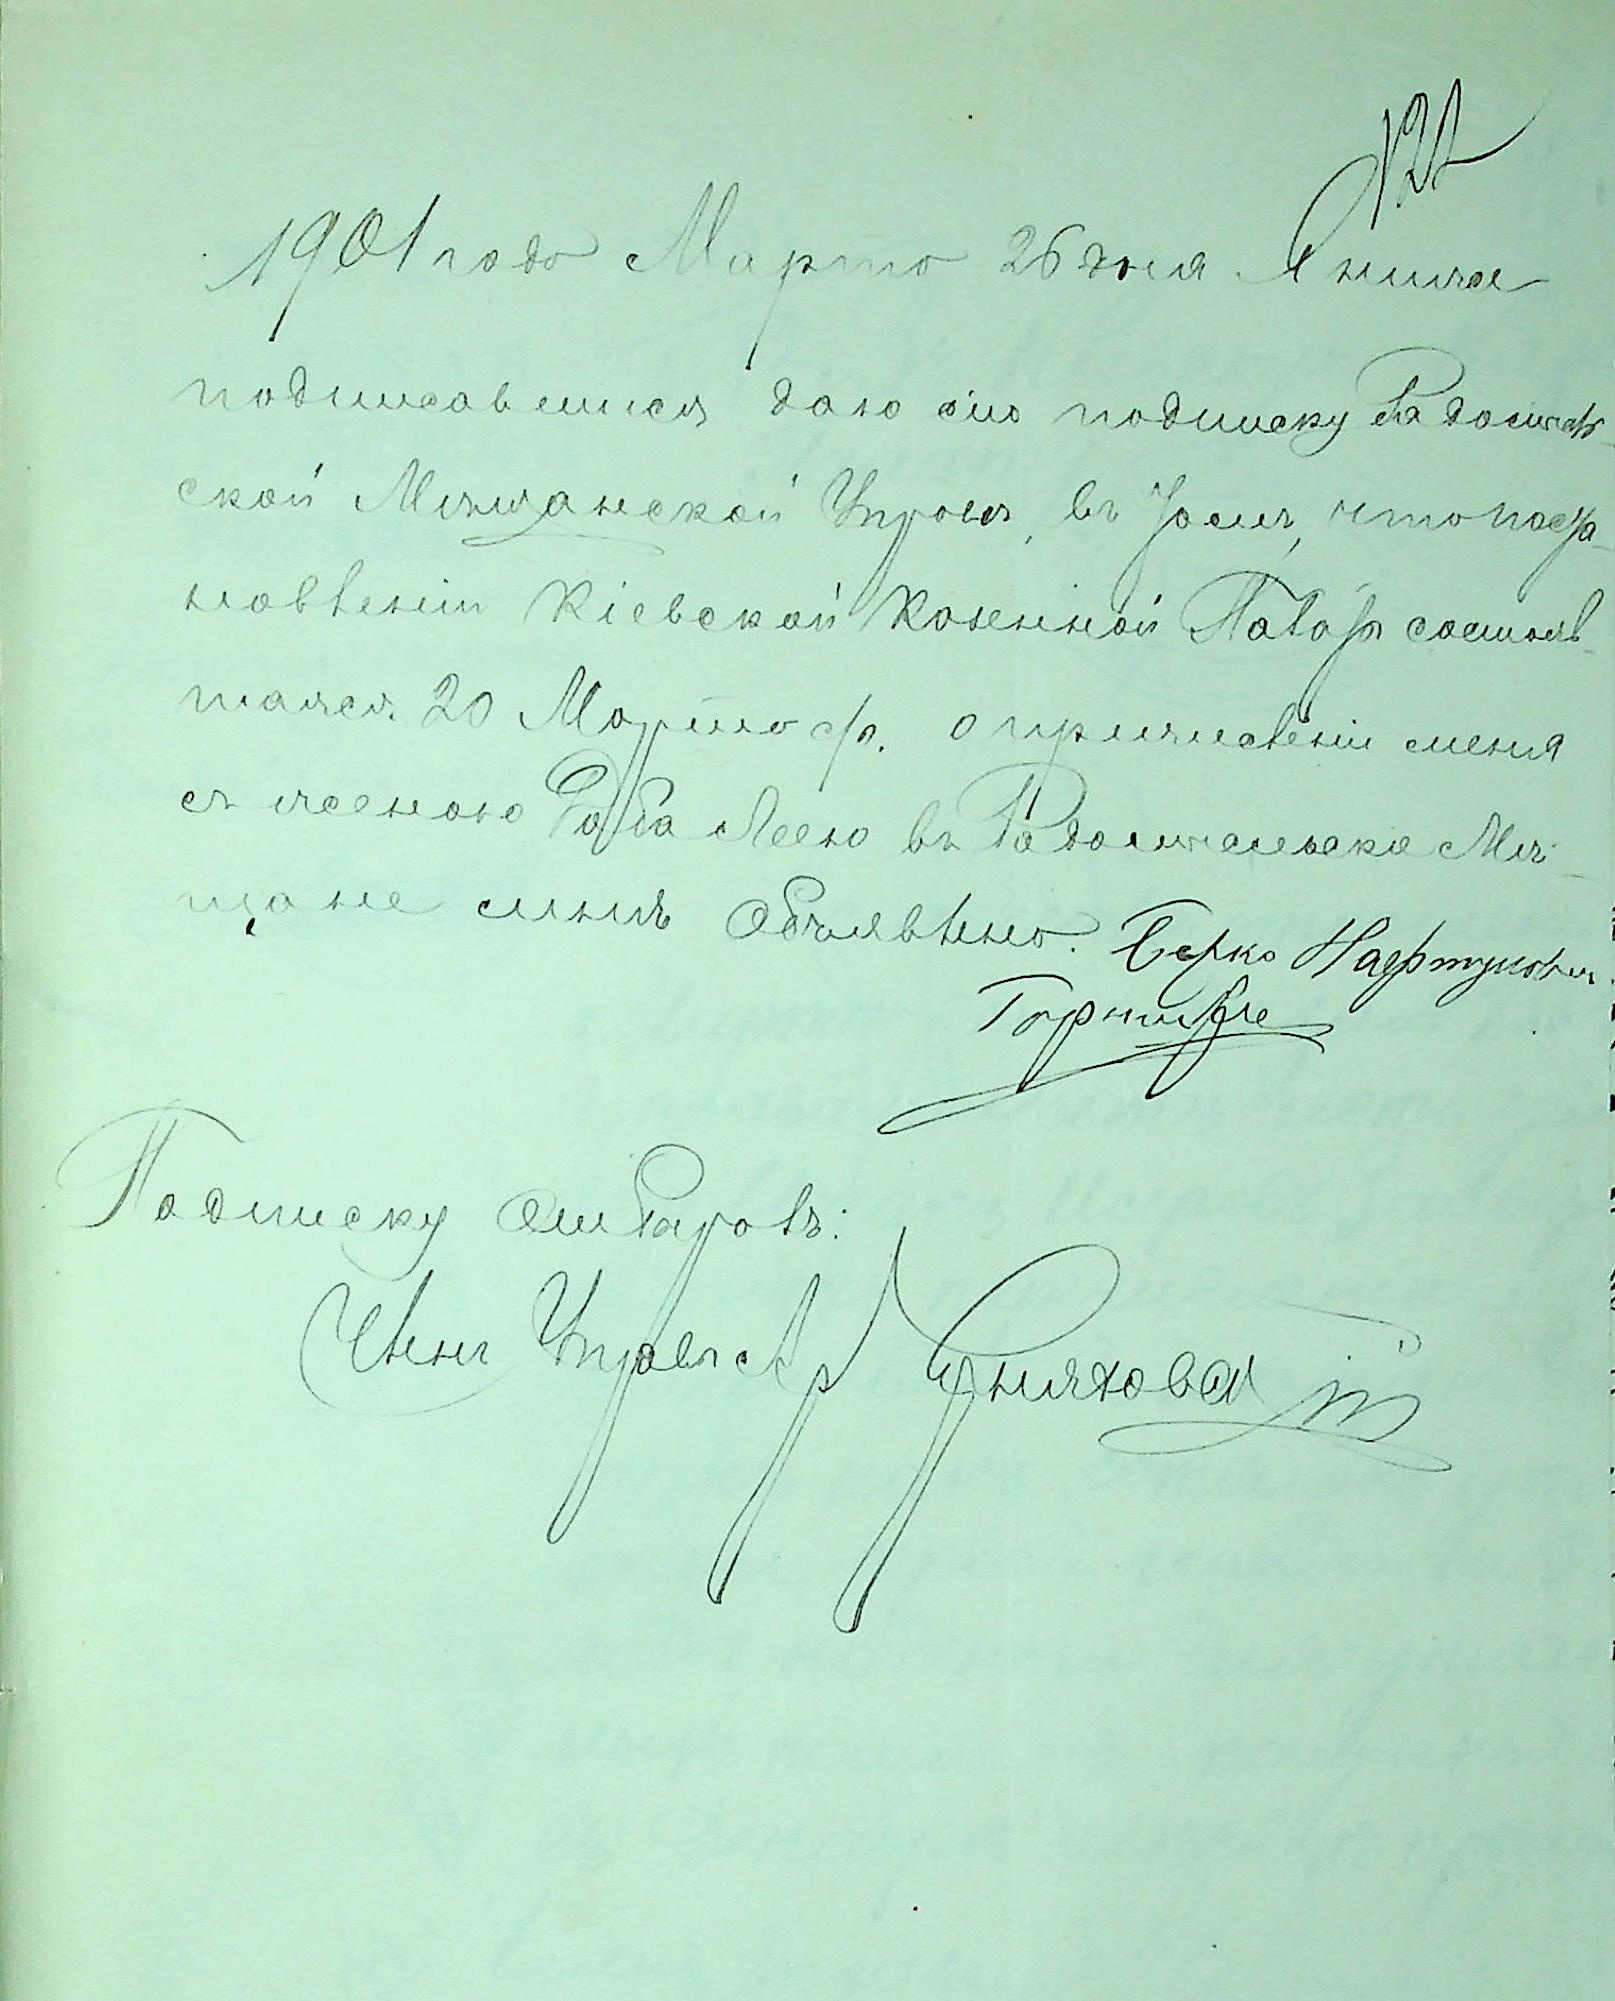 121
1901 года Марта 26 дня Я ниже
подписавшійся даю сію подписку Радомысль
ской Мѣщанской Управѣ, въ томъ, что поста
новленіи Кіевской Казенной Палаты состояв
шаяся 20 Марта с/г. о причисленіи меня
съ женою Рабо Леею въ Радомысльскіе Мѣ
щане мнѣ объявлено. Берко Нафтулович
Подписку отбиралъ:
Членъ Управы